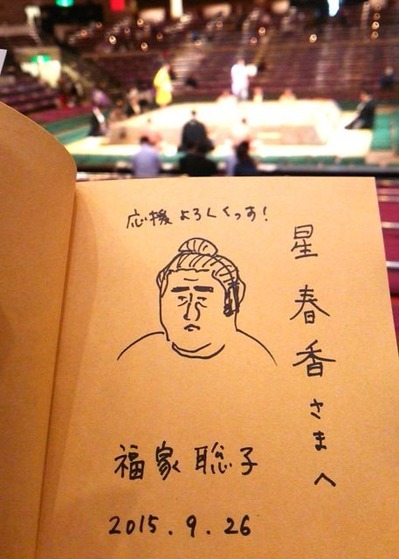 応援よろしくっす!
星春香さまへ
福家聡子
2015.9.26